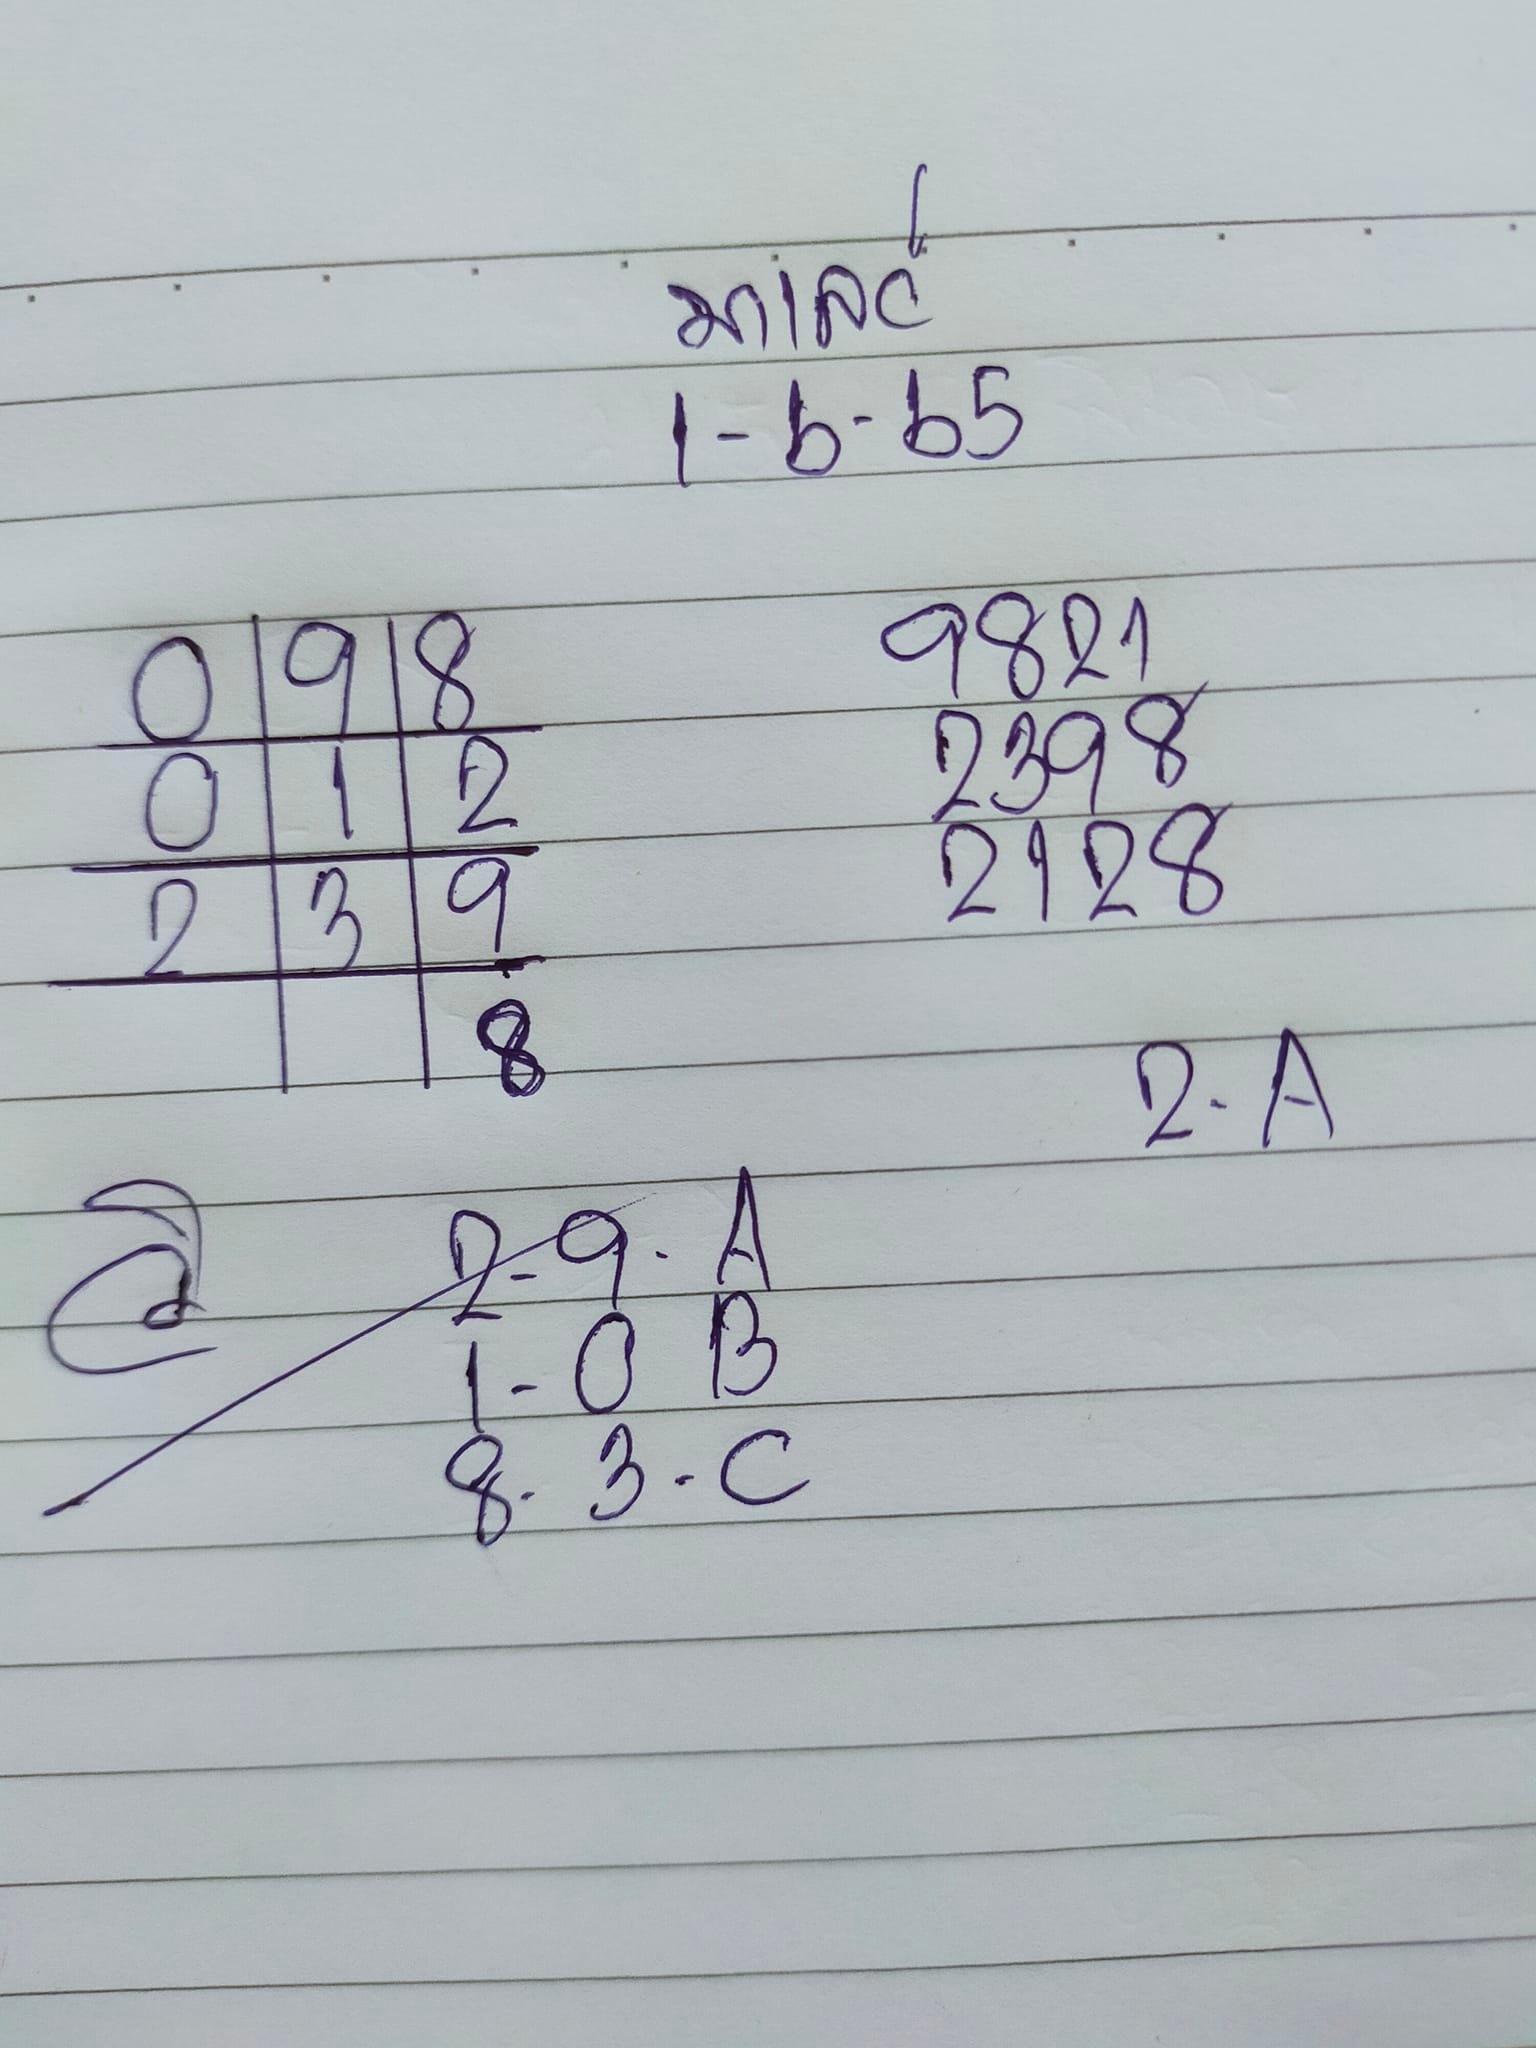 1-6-65
0 9 8
0 1 2
2 3 9
8
9821
2398
2128
2. A
2-9. A
1-0 B
8. 3. C